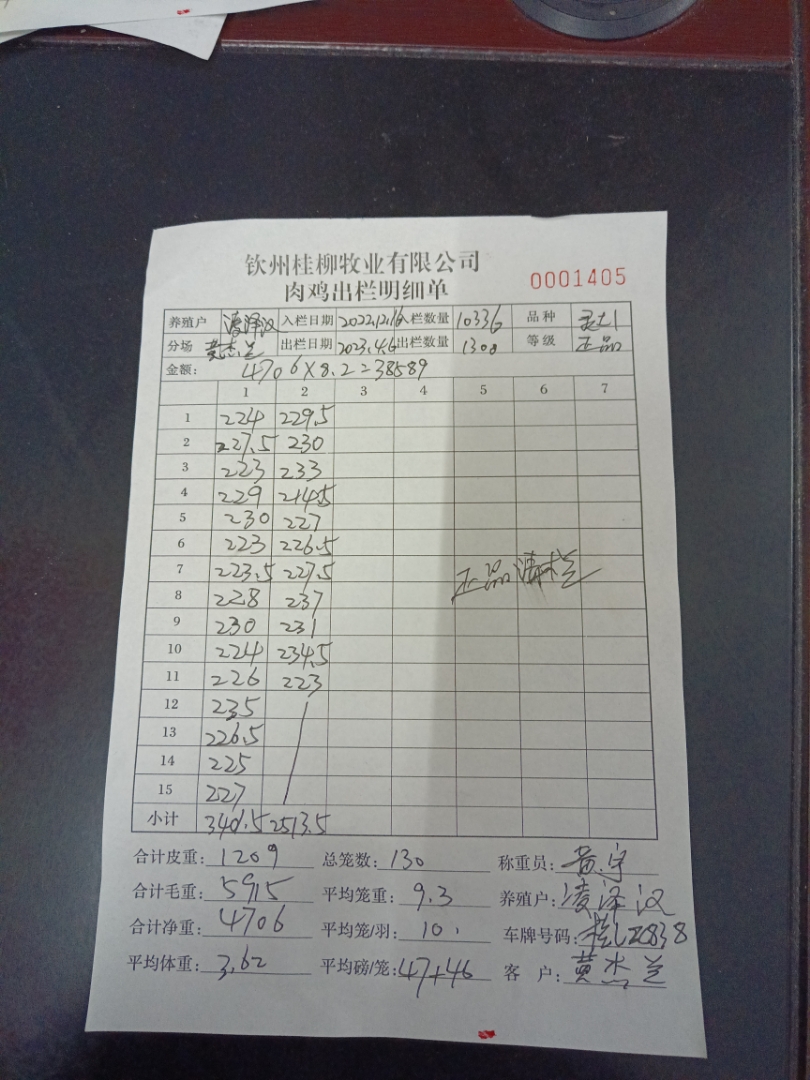 钦州桂柳牧业有限公司
肉鸡出栏明细单
0001405
养殖户 凌泽汉 入栏日期 2022.12.16 入栏数量 10336 品种
分场 黄杰兰 出栏日期 2023.4.6 出栏数量 1308 等级 正品
金额: 4706×8.2=38589
1 2 3 4 5 6 7
1 224 229.5
2 227.5 230
3 223 233
4 229 214.5
5 230 227
6 223 226.5
7 223.5 227.5 正品清栏
8 228 237
9 230 231
10 224 234.5
11 226 223
12 235
13 226.5
14 225
15 227
小计 3401.5 2513.5
合计皮重: 1209 总笼数: 130 称重员: 黄宇
合计毛重: 5915 平均笼重: 9.3 养殖户: 凌泽汉
合计净重: 4706 平均笼/羽: 10. 车牌号码:
平均体重: 3.62 平均磅/笼: 47+46 客户: 黄杰兰